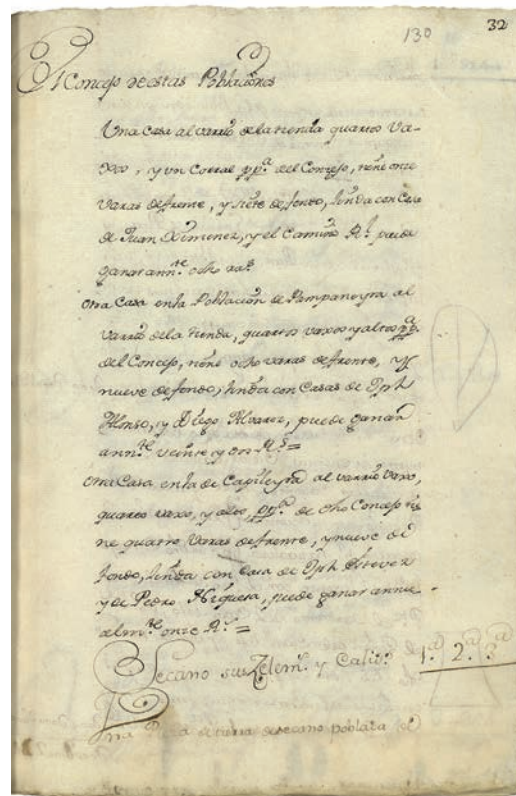 130
32
El Concejo de estas Poblaciones
Una Casa al varrio de la tienda quartos va-
xos, y un Corral pp.ª del Concejo, tiene once
varas de frente, y siete de fondo, linda con Casa
de Juan Ximenez, y el Camino R.l puede
ganar ann.te ocho rr.s
Otra Casa en la Poblacion de Pampaneyra al
varrio de la tienda, quartos vaxos y altos pp.ª
del Concejo, tiene ocho varas de frente, y
nueve de fondo, linda con Casas de Jph
Alonso, y Diego Alvarez, puede ganar
ann.te veinte y dos R.s =
Otra Casa en la de Capileyra al varrio vaxo,
quarto vaxo, y alto, pp.ª de dho Concejo tie
ne quatro varas de frente, y nueve de
fondo, linda con Casa de Jph Estevez
y de Pedro Higuera, puede ganar annu
alm.te once R.s =
Secano sus Zelem.s y Calid.s 1.ª 2.ª 3.ª
Una Pieza de tierra de secano poblada de